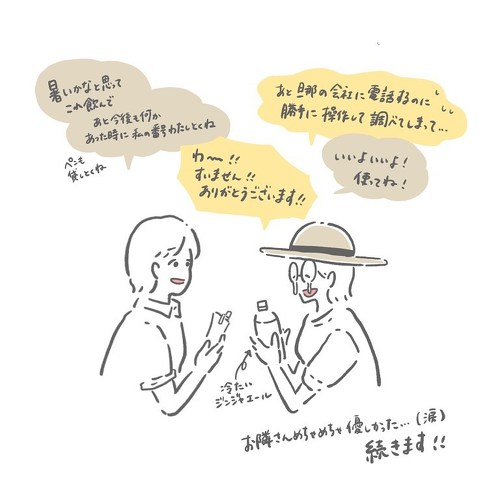 暑いかなと思って
これ飲んで
あと今後も何か
あった時に私の番号わたしとくね
ペンも
貸しとくね
あと旦那の会社に電話するのに
勝手に操作して調べてしまって...
いいよいいよ!
使ってね!
わ〜!!
すいません!!
ありがとうございます!!
冷たい
ジンジャエール
お隣さんめちゃめちゃ優しかった...(涙)
続きます!!